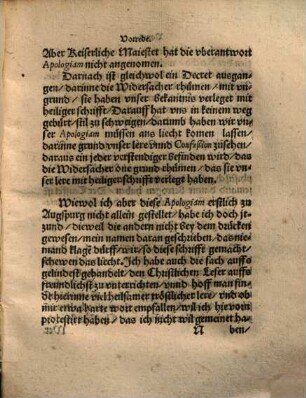 Vorrede.
Aber Keiserliche Maiestet hat die vberantwort
Apologiam nicht angenomen.
Darnach ist gleichwol ein Decret ausgan-
gen/ darinne die Widersacher rhümen/ mit vn-
grund/ sie haben vnser Bekantnis verleget mit
heiliger schrifft/ Darauff hat vns in keinem weg
gebürt/ stil zu schweigen/ darumb haben wir vnser
Apologiam müssen ans liecht komen lassen/
darinne grund vnser lere vnnd Confession zusehen/
daraus ein jeder verstendiger befinden wird/ das
die Widersacher one grund rhümen/ das sie vn
ser lere mit heiliger schrifft verlegt haben.
Wiewol ich aber diese Apologiam erstlich zu
Augspurg nicht allein gestellet/ habe ich doch jt-
zund/ dieweil die andern nicht bey dem drücken
gewesen/ mein namen daran geschrieben/ das nie-
mand klagē dürff/ wir/ so diese schrifft gemacht
schewen das liecht. Ich habe auch die sach auffs
gelindest gehandelt/ den Christlichen Leser auffs
freundlichst zu vnterrichten/ vnnd hoff man fin-
de hierinne viel heilsamer tröstlicher lere/ vnd ob
mir etwa harte wort empfallen/ wil ich hie vorn
protestiert haben/ das ich nicht wil gemeinet ha-
ben/